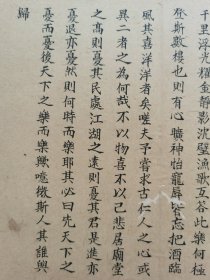 千里浮光耀金静影沈璧漁歌互答此樂何極
登斯樓也則有心曠神怡寵辱皆忘把酒臨
風其喜洋洋者矣嗟夫予嘗求古仁人之心或
異二者之為何哉不以物喜不以己悲居廟堂
之高則憂其民處江湖之遠則憂其君是進亦
憂退亦憂然則何時而樂耶其必曰先天下之
憂而憂後天下之樂而樂歟噫微斯人其誰與
歸